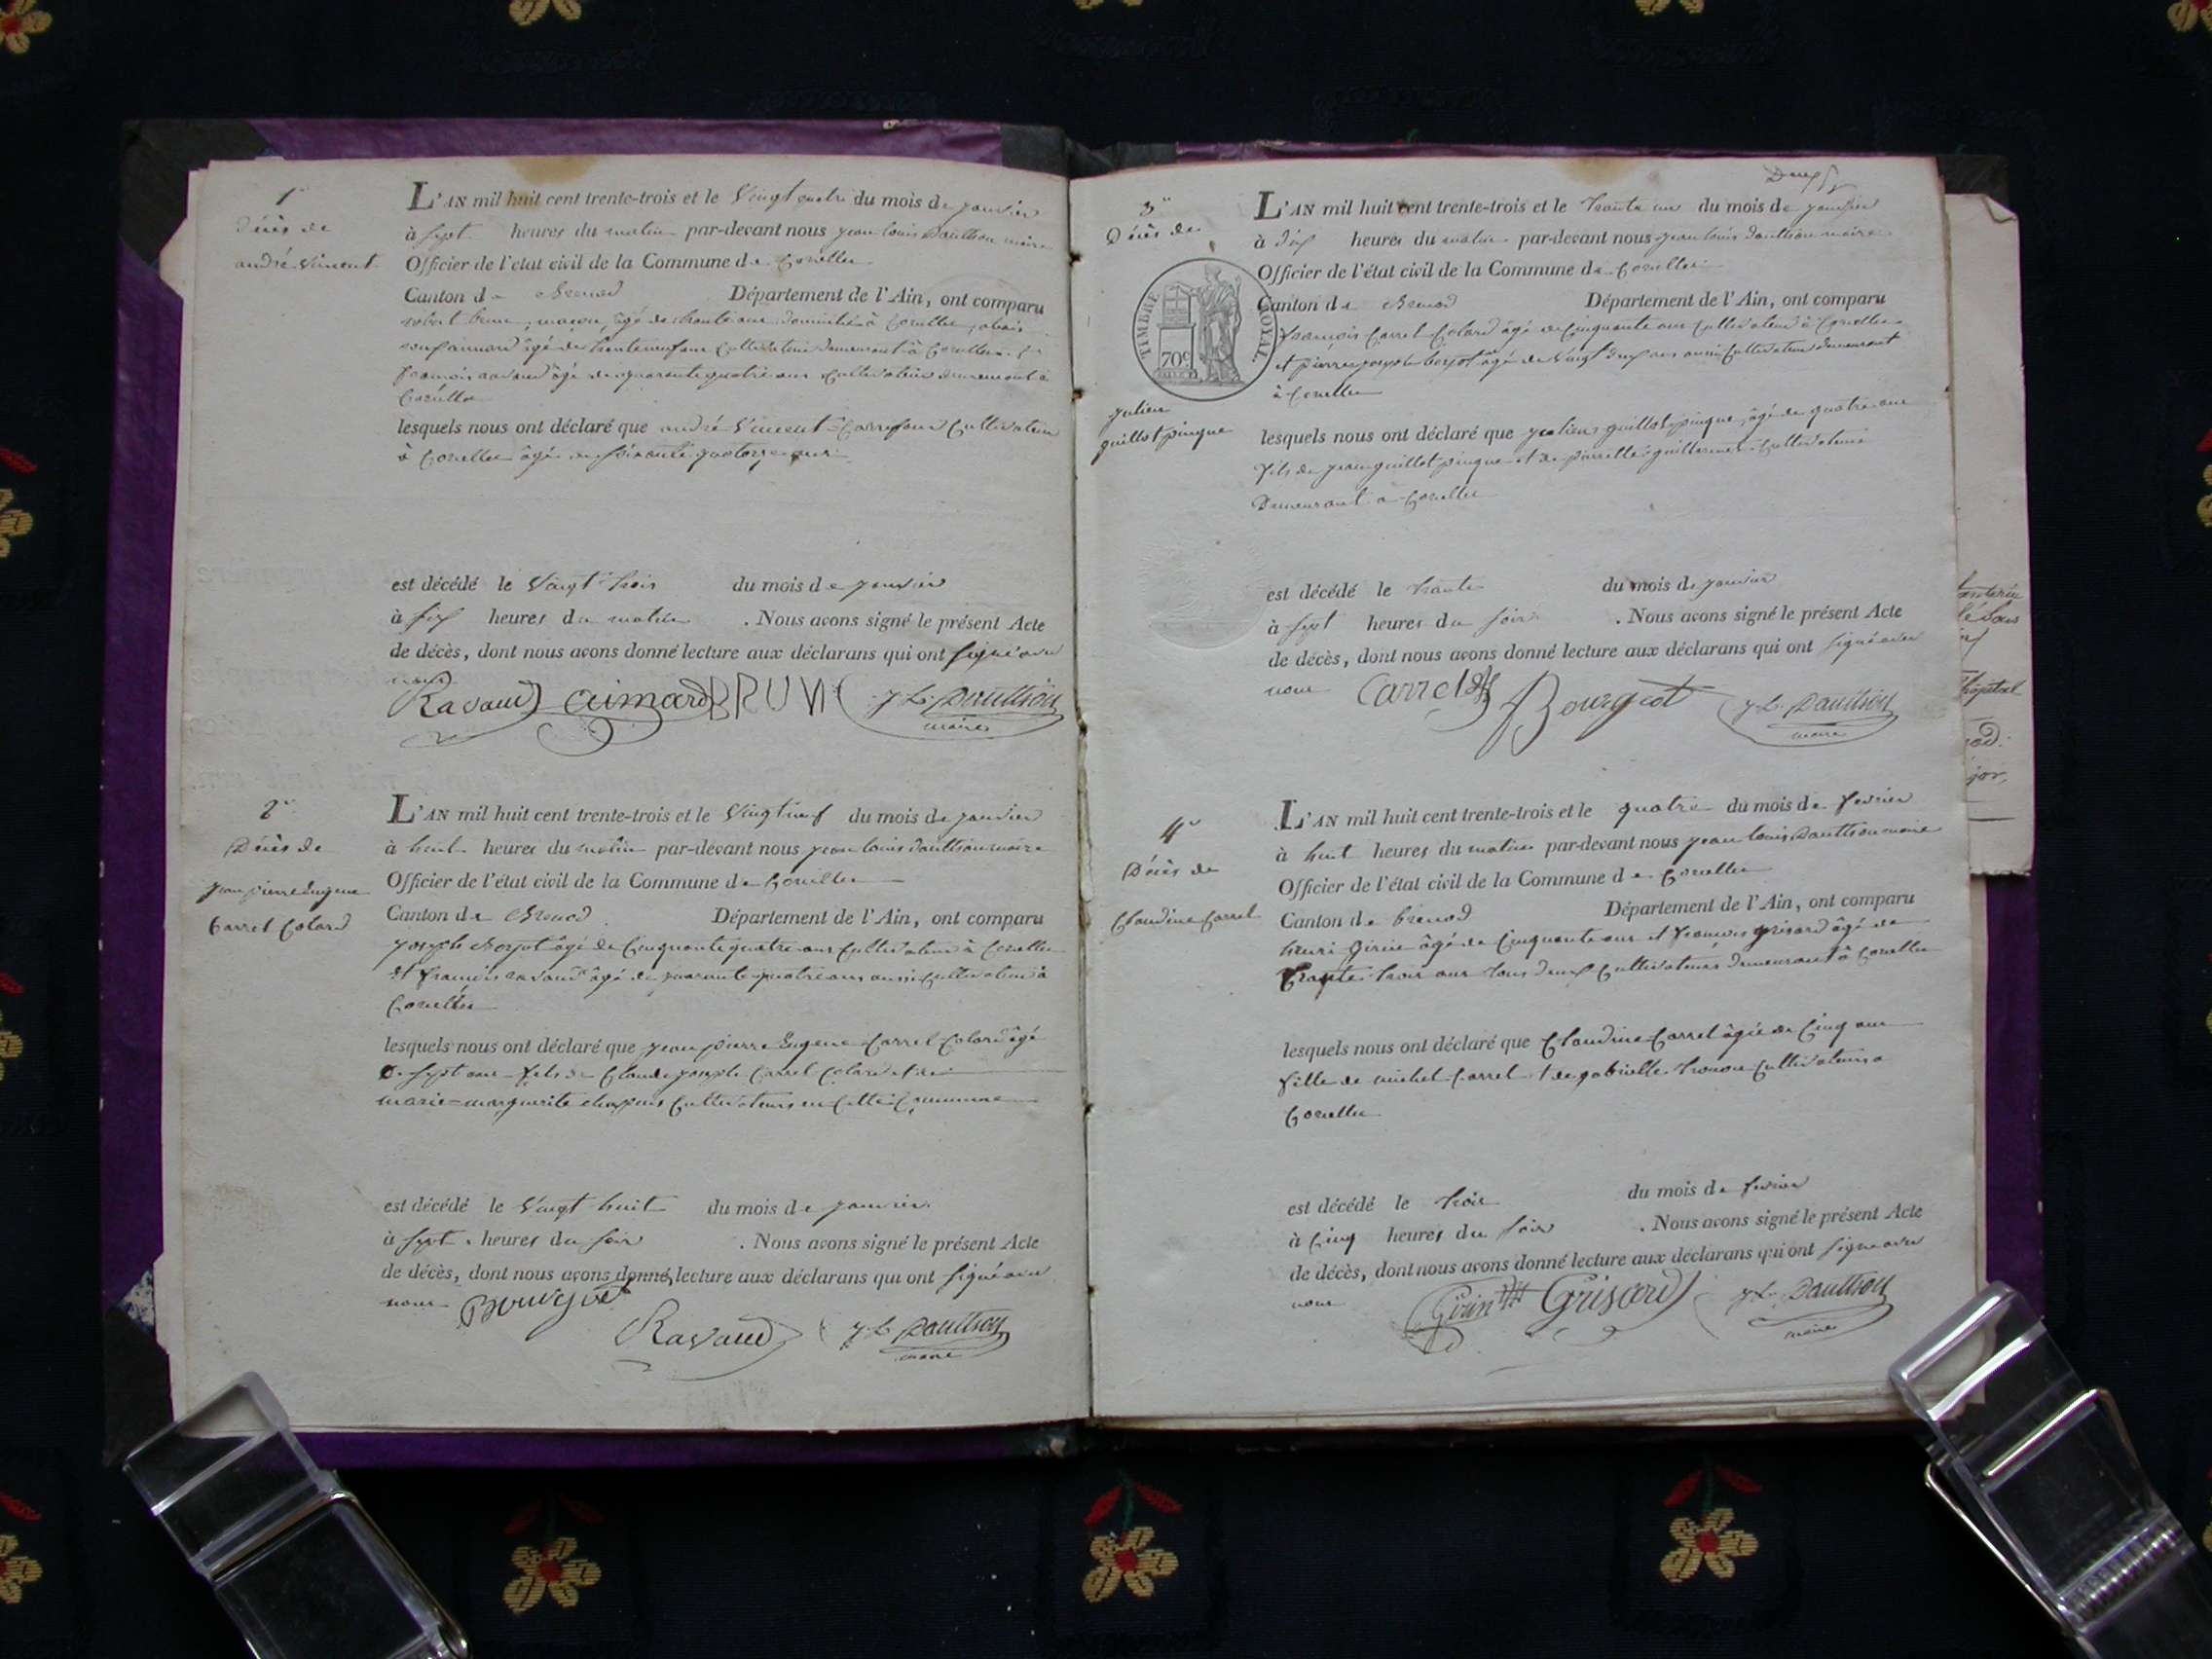 1er
Décès de
andré Vincent
L'AN mil huit cent trente-trois et le Vingt quatre du mois de janvier
à sept heures du matin par-devant nous jean louis Dauthion maire
Officier de l'état civil de la Commune de Corcelles
Canton de Brenod Département de l'Ain, ont comparu
brun, maçon, âgé de trente ans domicilié à Corcelles
aimard âgé de trente neuf ans Cultivateur demeurant à Corcelles
françois ravaud âgé de quarante quatre ans Cultivateur demeurant à
Corcelles
lesquels nous ont déclaré que andré Vincent-Carrefour Cultivateur
à Corcelles âgé de soixante quatorze ans
est décédé le Vingt trois du mois de janvier
à six heures du matin . Nous avons signé le présent Acte
de décès, dont nous avons donné lecture aux déclarans qui ont signé avec
nous
Ravaud aimard BRUN J L Dauthion
maire
2e
Décès de
jean pierre Eugene
Carrel Colard
L'AN mil huit cent trente-trois et le Vingt neuf du mois de janvier
à huit heures du matin par-devant nous jean louis Dauthion maire
Officier de l'état civil de la Commune de Corcelles
Canton de Brenod Département de l'Ain, ont comparu
joseph âgé de Cinquante quatre ans Cultivateur à Corcelles
et françois ravaud âgé de quarante quatre ans aussi Cultivateur à
Corcelles
lesquels nous ont déclaré que jean pierre Eugene Carrel Colard âgé
de sept ans fils de Claude joseph Carrel Colard et de
marie=marguerite Cultivateurs en Cette Commune
est décédé le Vingt huit du mois de janvier
à sept heures du soir . Nous avons signé le présent Acte
de décès, dont nous avons donné lecture aux déclarans qui ont signé avec
nous Bourgeot
Ravaud J L Dauthion
maire
Deux
3e
Décès de
julien
guillot pinque
TIMBRE ROYAL
70c
L'AN mil huit cent trente-trois et le trente un du mois de janvier
à dix heures du matin par-devant nous jean louis Dauthion maire
Officier de l'état civil de la Commune de Corcelles
Canton de Brenod Département de l'Ain, ont comparu
françois Carrel Colard âgé de Cinquante ans Cultivateur à Corcelles
et pierre joseph âgé de Vingt ans aussi Cultivateur demeurant
à Corcelles
lesquels nous ont déclaré que julien guillot pinque, âgé de quatre ans
fils de jean guillot pinque et de pierrette guillermet Cultivateurs
Demeurant à Corcelles
est décédé le trente du mois de janvier
à sept heures du soir . Nous avons signé le présent Acte
de décès, dont nous avons donné lecture aux déclarans qui ont signé avec
nous Carrel Bourgeot J L Dauthion
maire
4e
Décès de
Claudine Carrel
L'AN mil huit cent trente-trois et le quatre du mois de fevrier
à huit heures du matin par-devant nous jean louis Dauthion maire
Officier de l'état civil de la Commune de Corcelles
Canton de Brenod Département de l'Ain, ont comparu
henri Girin âgé de Cinquante ans et françois grisard âgé de
trente trois ans tous deux Cultivateurs demeurant à Corcelles
lesquels nous ont déclaré que Claudine Carrel âgée de Cinq ans
fille de michel Carrel et de gabrielle Cultivateurs à
Corcelles
est décédé le trois du mois de fevrier
à Cinq heures du soir . Nous avons signé le présent Acte
de décès, dont nous avons donné lecture aux déclarans qui ont signé avec
nous Girin Grisard J L Dauthion
maire